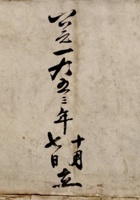 公元一九五三年
十月
七日立